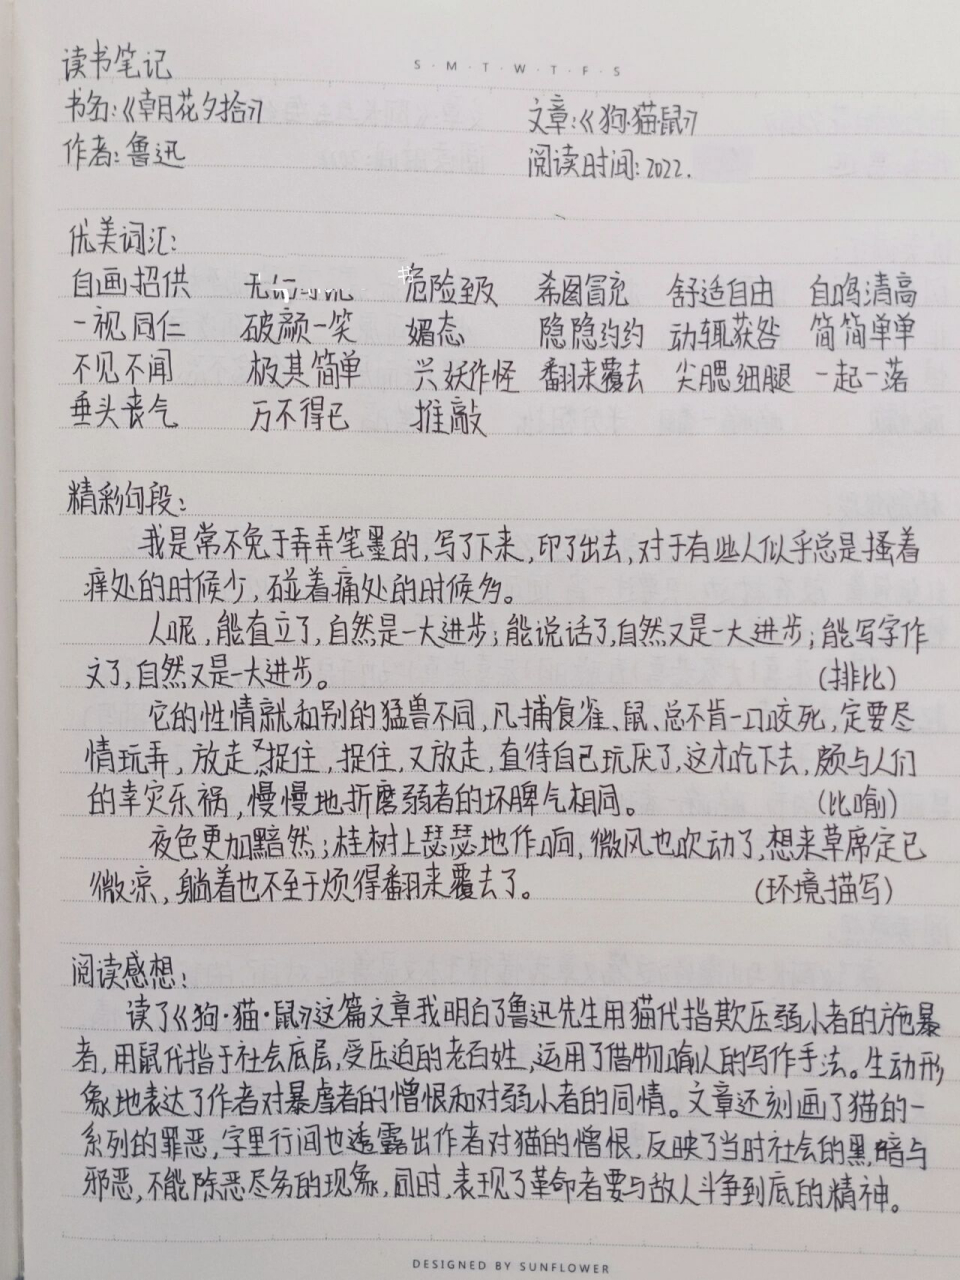 S·M·T·W·T·F·S
读书笔记
书名:《朝花夕拾》 文章:《狗·猫·鼠》
作者:鲁迅 阅读时间:2022.
优美词汇:
自画招供 无 危险至极 希图冒充 舒适自由 自鸣清高
一视同仁 破颜一笑 媚态 隐隐约约 动辄获咎 简简单单
不见不闻 极其简单 兴妖作怪 翻来覆去 尖腮细腿 一起一落
垂头丧气 万不得已 推敲
精彩句段:
我是常不免于弄弄笔墨的,写了下来,印了出去,对于有些人似乎总是搔着
痒处的时候少,碰着痛处的时候多。
人呢,能直立了,自然是一大进步;能说话了,自然又是一大进步;能写字作
文了,自然又是一大进步。 (排比)
它的性情就和别的猛兽不同,凡捕食雀、鼠、总不肯一口咬死,定要尽
情玩弄,放走又捉住,捉住,又放走,直待自己玩厌了,这才吃下去,颇与人们
的幸灾乐祸,慢慢地折磨弱者的坏脾气相同。 (比喻)
夜色更加黯然;桂树上瑟瑟地作响,微风也吹动了,想来草席定已
微凉,躺着也不至于烦得翻来覆去了。 (环境描写)
阅读感想:
读了《狗·猫·鼠》这篇文章我明白了鲁迅先生用猫代指欺压弱小者的施暴
者,用鼠代指于社会底层,受压迫的老百姓,运用了借物喻人的写作手法。生动形
象地表达了作者对暴虐者的憎恨和对弱小者的同情。文章还刻画了猫的一
系列的罪恶,字里行间也透露出作者对猫的憎恨,反映了当时社会的黑暗与
邪恶,不能除恶尽务的现象,同时,表现了革命者要与敌人斗争到底的精神。
DESIGNED BY SUNFLOWER